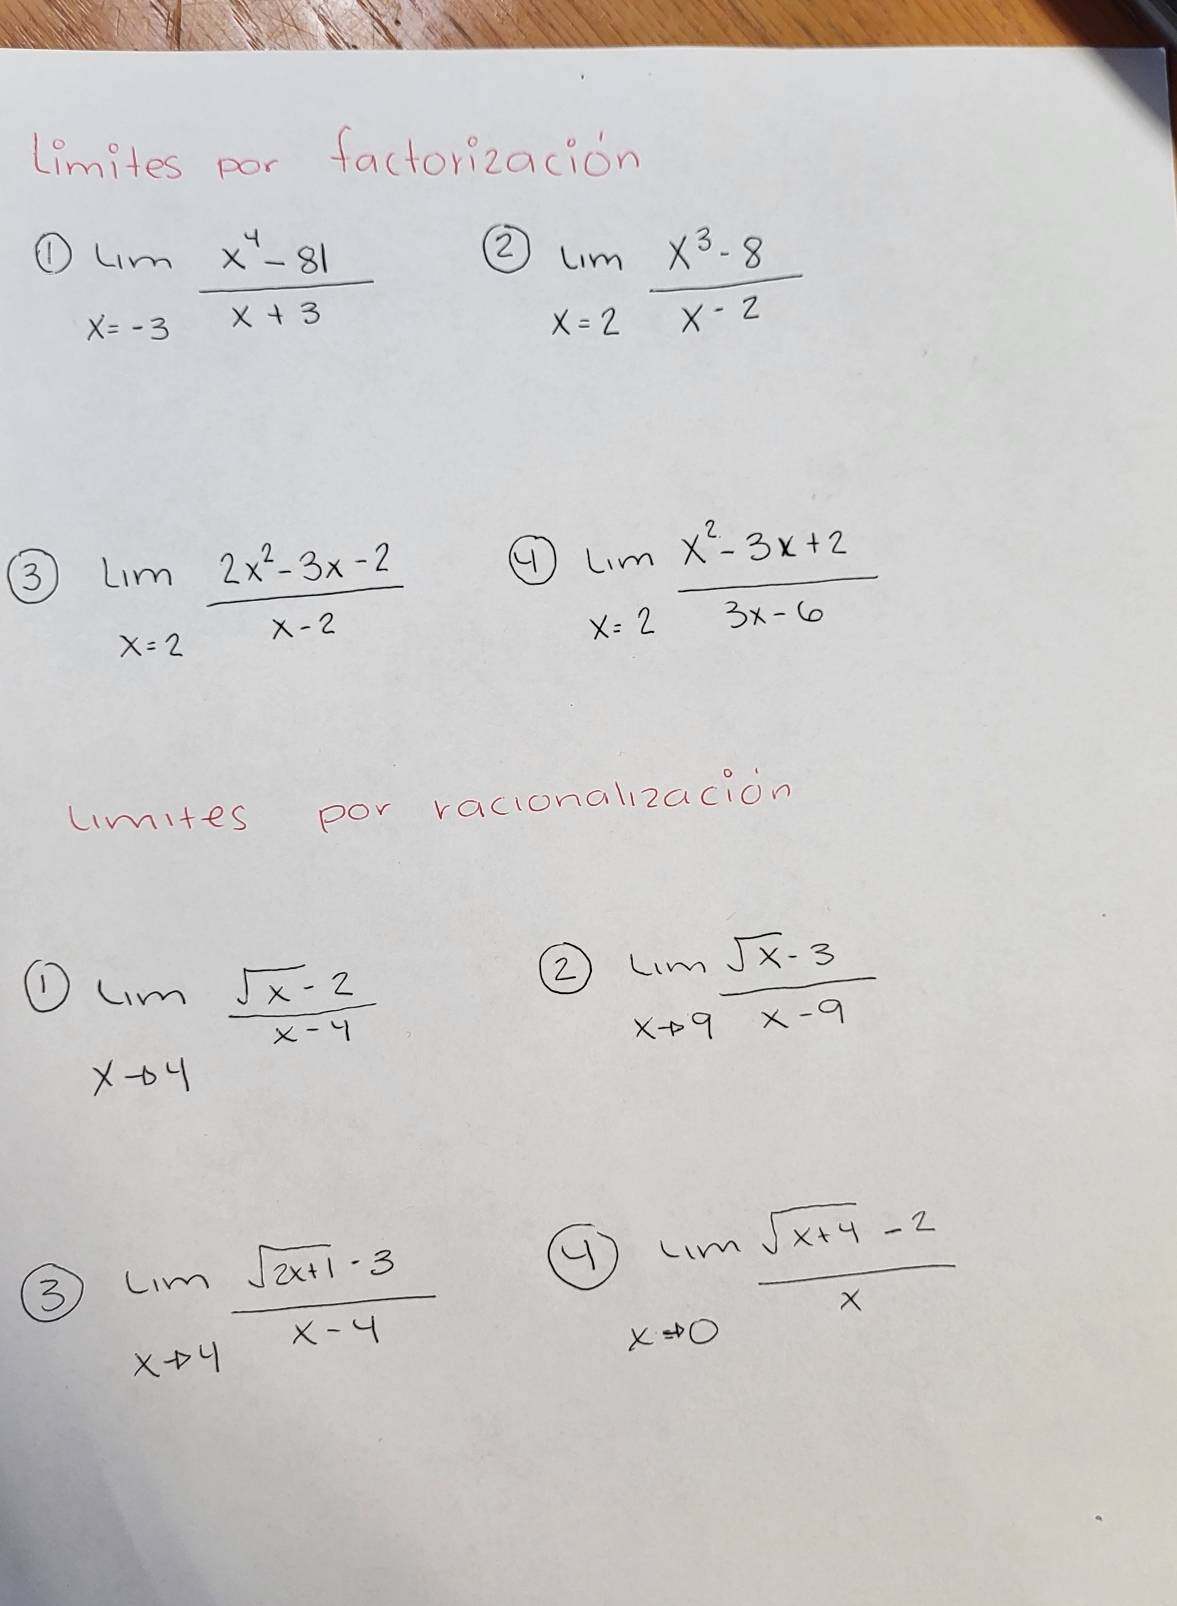 Limites por factorización
① Lim x⁴-81 / x+3
x=-3
② Lim x³-8 / x-2
x=2
③ Lim 2x²-3x-2 / x-2
x=2
④ Lim x²-3x+2 / 3x-6
x=2
Limites por racionalización
① Lim √x-2 / x-4
x→4
② Lim √x-3 / x-9
x→9
③ Lim √2x+1-3 / x-4
x→4
④ Lim √x+4-2 / x
x→0